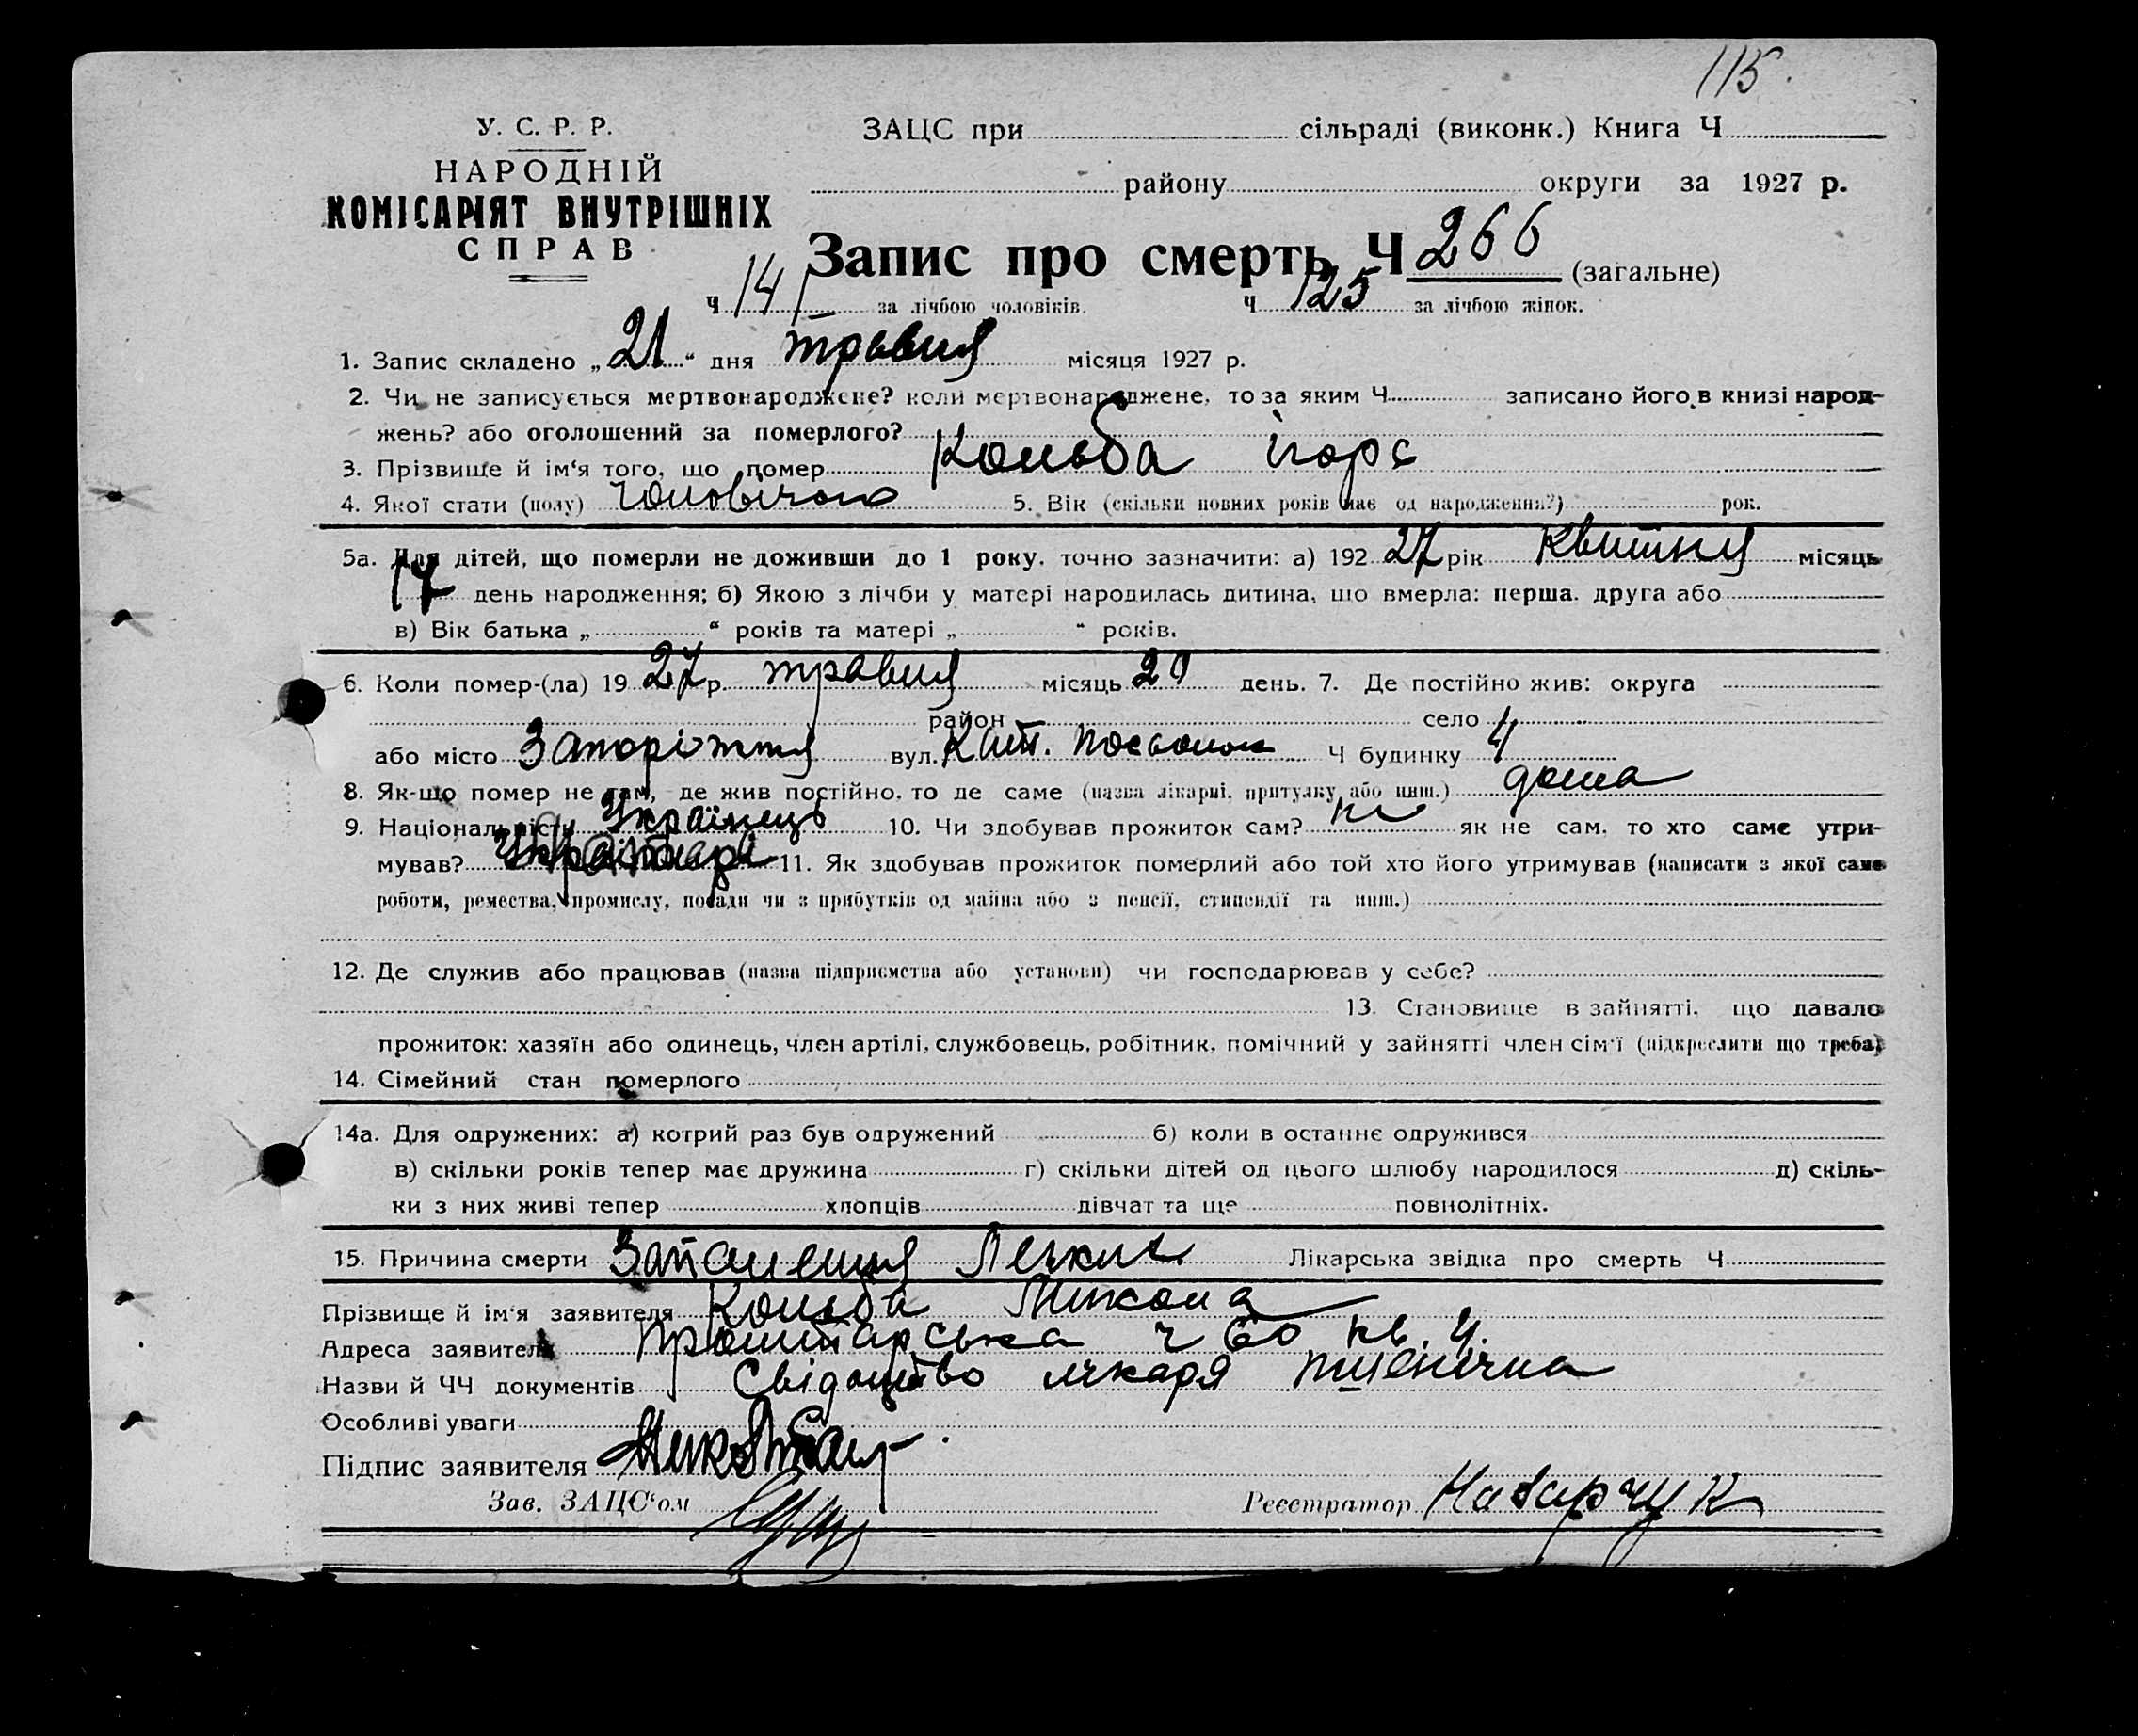 115.
У. С. Р. Р.
НАРОДНІЙ
КОМІСАРІЯТ ВНУТРІШНІХ
СПРАВ
ЗАЦС при сільраді (виконк.) Книга Ч
району округи за 1927 р.
Запис про смерть Ч 266 (загальне)
ч 141 за лічбою чоловіків. ч 125 за лічбою жінок.
1. Запис складено „21" дня травня місяця 1927 р.
2. Чи не записується мертвонароджене? коли мертвонароджене, то за яким Ч записано його в книзі народ-
жень? або оголошений за померлого?
3. Прізвище й ім'я того, що помер Кольба ігорє
4. Якої стати (полу) чоловічою 5. Вік (скільки повних років має од народження?) рок.
5а. Для дітей, що померли не доживши до 1 року, точно зазначити: а) 192 27 рік Квітня місяць
17 день народження; б) Якою з лічби у матері народилась дитина, що вмерла: перша, друга або
в) Вік батька „ " років та матері „ " років.
6. Коли помер-(ла) 19 27 р. травня місяць 20 день. 7. Де постійно жив: округа
район село
або місто Запоріжжя вул. Ч будинку 4
8. Як-що помер не там, де жив постійно, то де саме (назва лікарні, притулку або инш.) дома
9. Національність Українець 10. Чи здобував прожиток сам? ні як не сам, то хто саме утри-
мував? 11. Як здобував прожиток померлий або той хто його утримував (написати з якої саме
роботи, ремества, промислу, посади чи з прибутків од майна або з пенсії, стипендії та инш.)
12. Де служив або працював (назва підприємства або установи) чи господарював у себе?
13. Становище в зайнятті, що давало
прожиток: хазяїн або одинець, член артілі, службовець, робітник, помічний у зайнятті член сім'ї (підкреслити що треба)
14. Сімейний стан померлого
14а. Для одружених: а) котрий раз був одружений б) коли в останнє одружився
в) скільки років тепер має дружина г) скільки дітей од цього шлюбу народилося д) скіль-
ки з них живі тепер хлопців дівчат та ще повнолітніх.
15. Причина смерти Запалення Легких Лікарська звідка про смерть Ч
Прізвище й ім'я заявителя Кольба Микола
Адреса заявителя Пролітарська ч 60 кв. 4.
Назви й ЧЧ документів Свідоцтво лікаря Пшенічна
Особливі уваги
Підпис заявителя
Зав. ЗАЦС'ом Реєстратор Назарчук